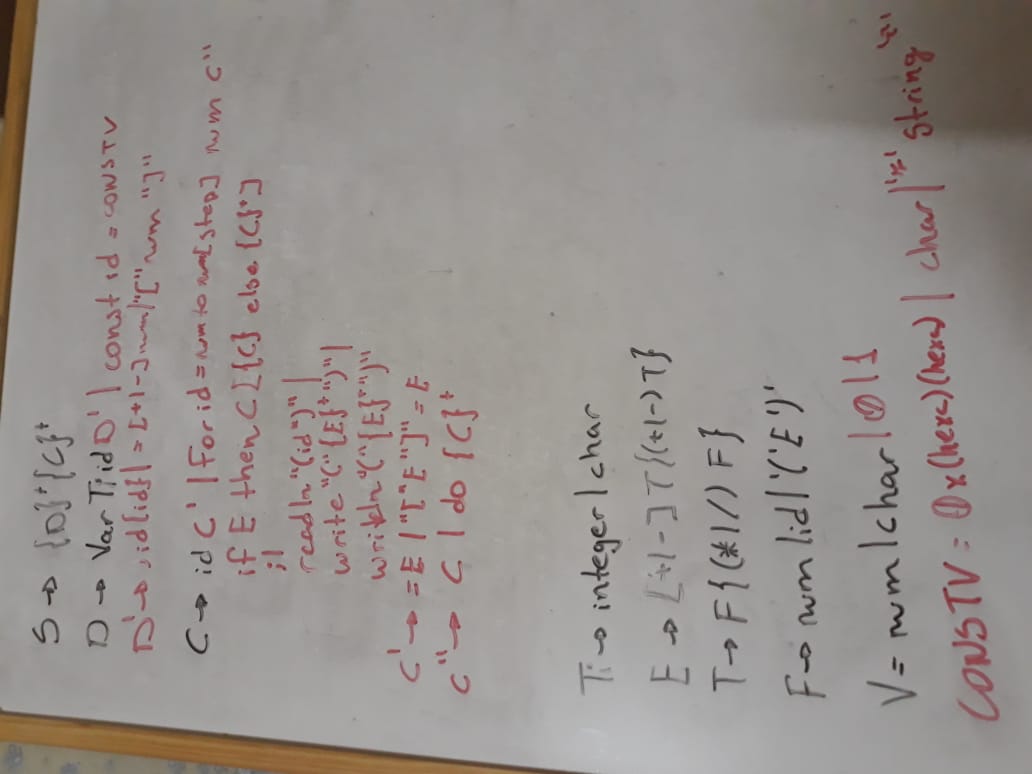 S → {D}⁺{C}⁺
D → Var Ti id D' | const id = CONSTV
D' → ,id{id} | = [+|-] num | "[" num "]"
C → id C' | For id = num to num [step] num C"
if E then C [{C} else {C}⁺]
; |
readln "(id")" |
write "("{E}⁺")" |
writeln "("{E}⁺")"
C' → = E | "[" E "]" = E
C" → C | do {C}⁺
Ti → integer | char
E → [+|-] T {(+|-) T}
T → F {(*|/) F}
F → num | id | '(' E ')'
V = num | char | 0 | 1
CONSTV = 0x(hexa)(hexa) | char | string